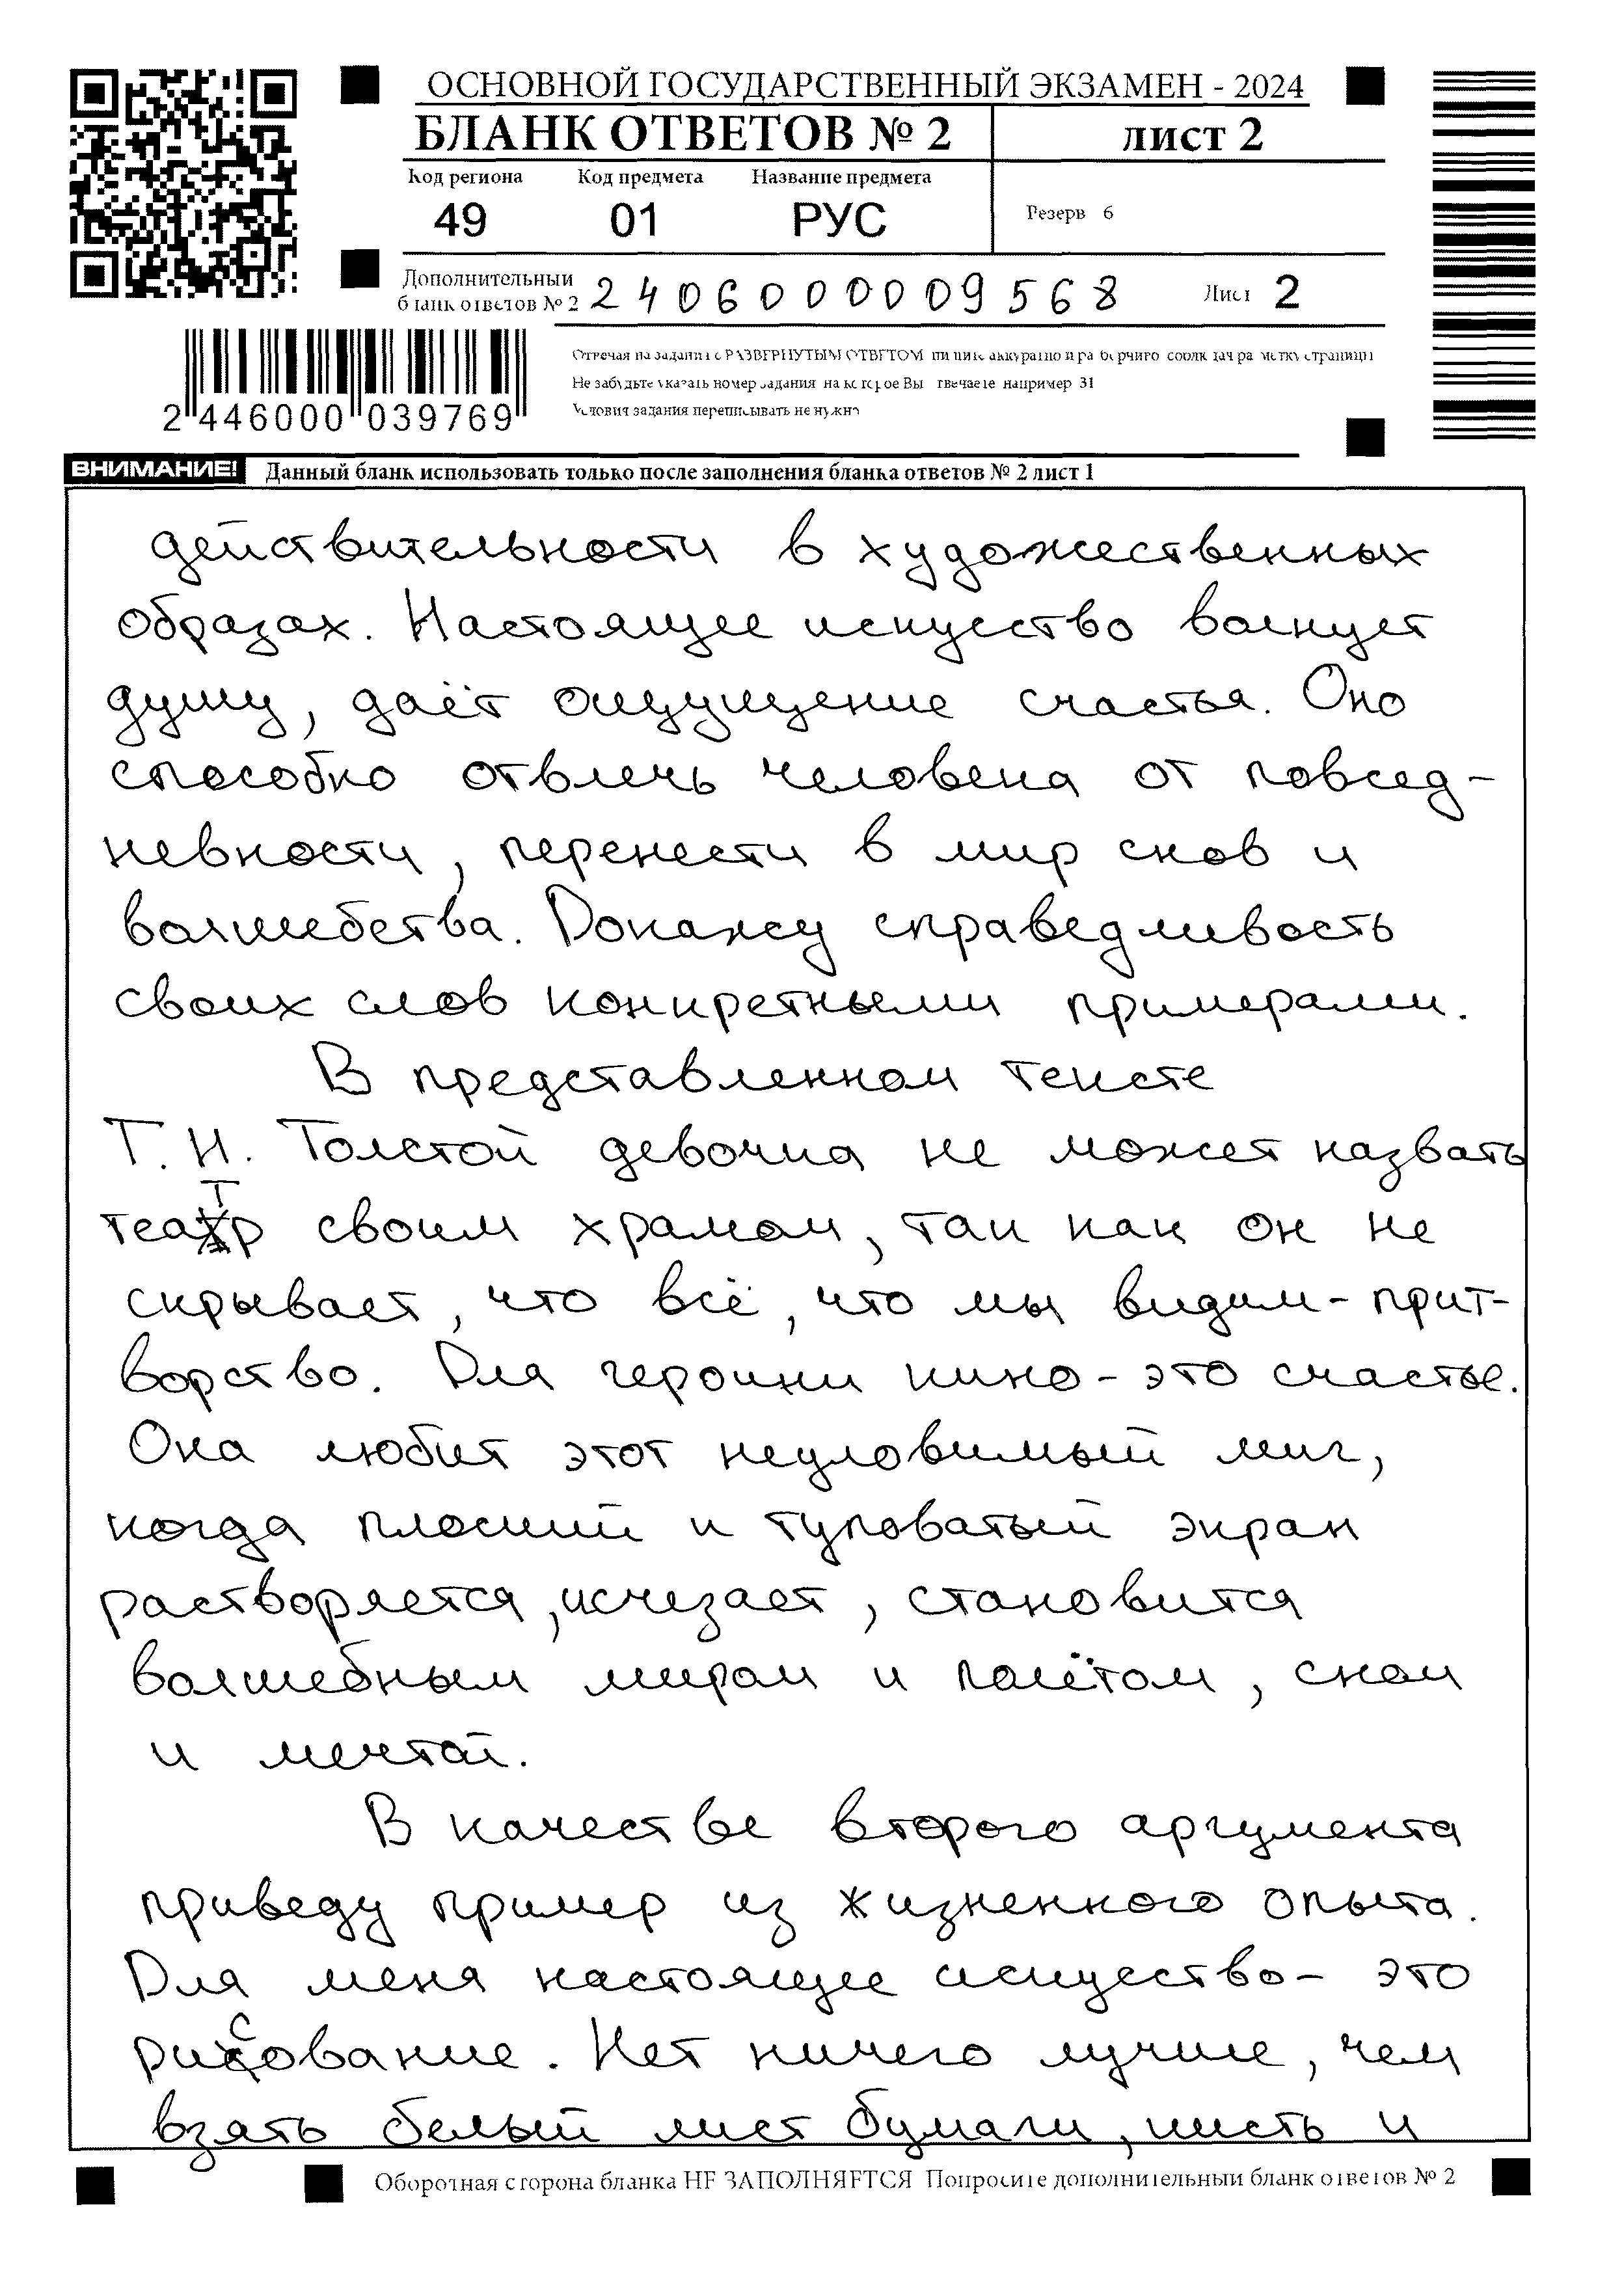 ОСНОВНОЙ ГОСУДАРСТВЕННЫЙ ЭКЗАМЕН - 2024
БЛАНК ОТВЕТОВ № 2 лист 2
Код региона Код предмета Название предмета
49 01 РУС Резерв 6
Дополнительный
бланк ответов № 2 2406000009568 Лист 2
Отвечая на задания с РАЗВЕРНУТЫМ ОТВЕТОМ, пишите аккуратно и разборчиво, соблюдая разметку страницы
Не забудьте указать номер задания, на которое Вы отвечаете, например 31
Условия задания переписывать не нужно
2 446000 039769
ВНИМАНИЕ! Данный бланк использовать только после заполнения бланка ответов № 2 лист 1
действительности в художественных
образах. Настоящее искусство волнует
душу, даёт ощущение счастья. Оно
способно отвлечь человека от повсед-
невности, перенести в мир снов и
волшебства. Докажу справедливость
своих слов конкретными примерами.
В представленном тексте
Т. Н. Толстой девочка не может назвать
театр своим храмом, так как он не
скрывает, что всё, что мы видим - прит-
ворство. Для героини кино - это счастье.
Она любит этот неуловимый миг,
когда плоский и туповатый экран
растворяется, исчезает, становится
волшебным миром и полётом, сном
и мечтой.
В качестве второго аргумента
приведу пример из жизненного опыта.
Для меня настоящее искусство - это
рисование. Нет ничего лучше, чем
взять белый лист бумаги, кисть и
Оборотная сторона бланка НЕ ЗАПОЛНЯЕТСЯ Попросите дополнительный бланк ответов № 2